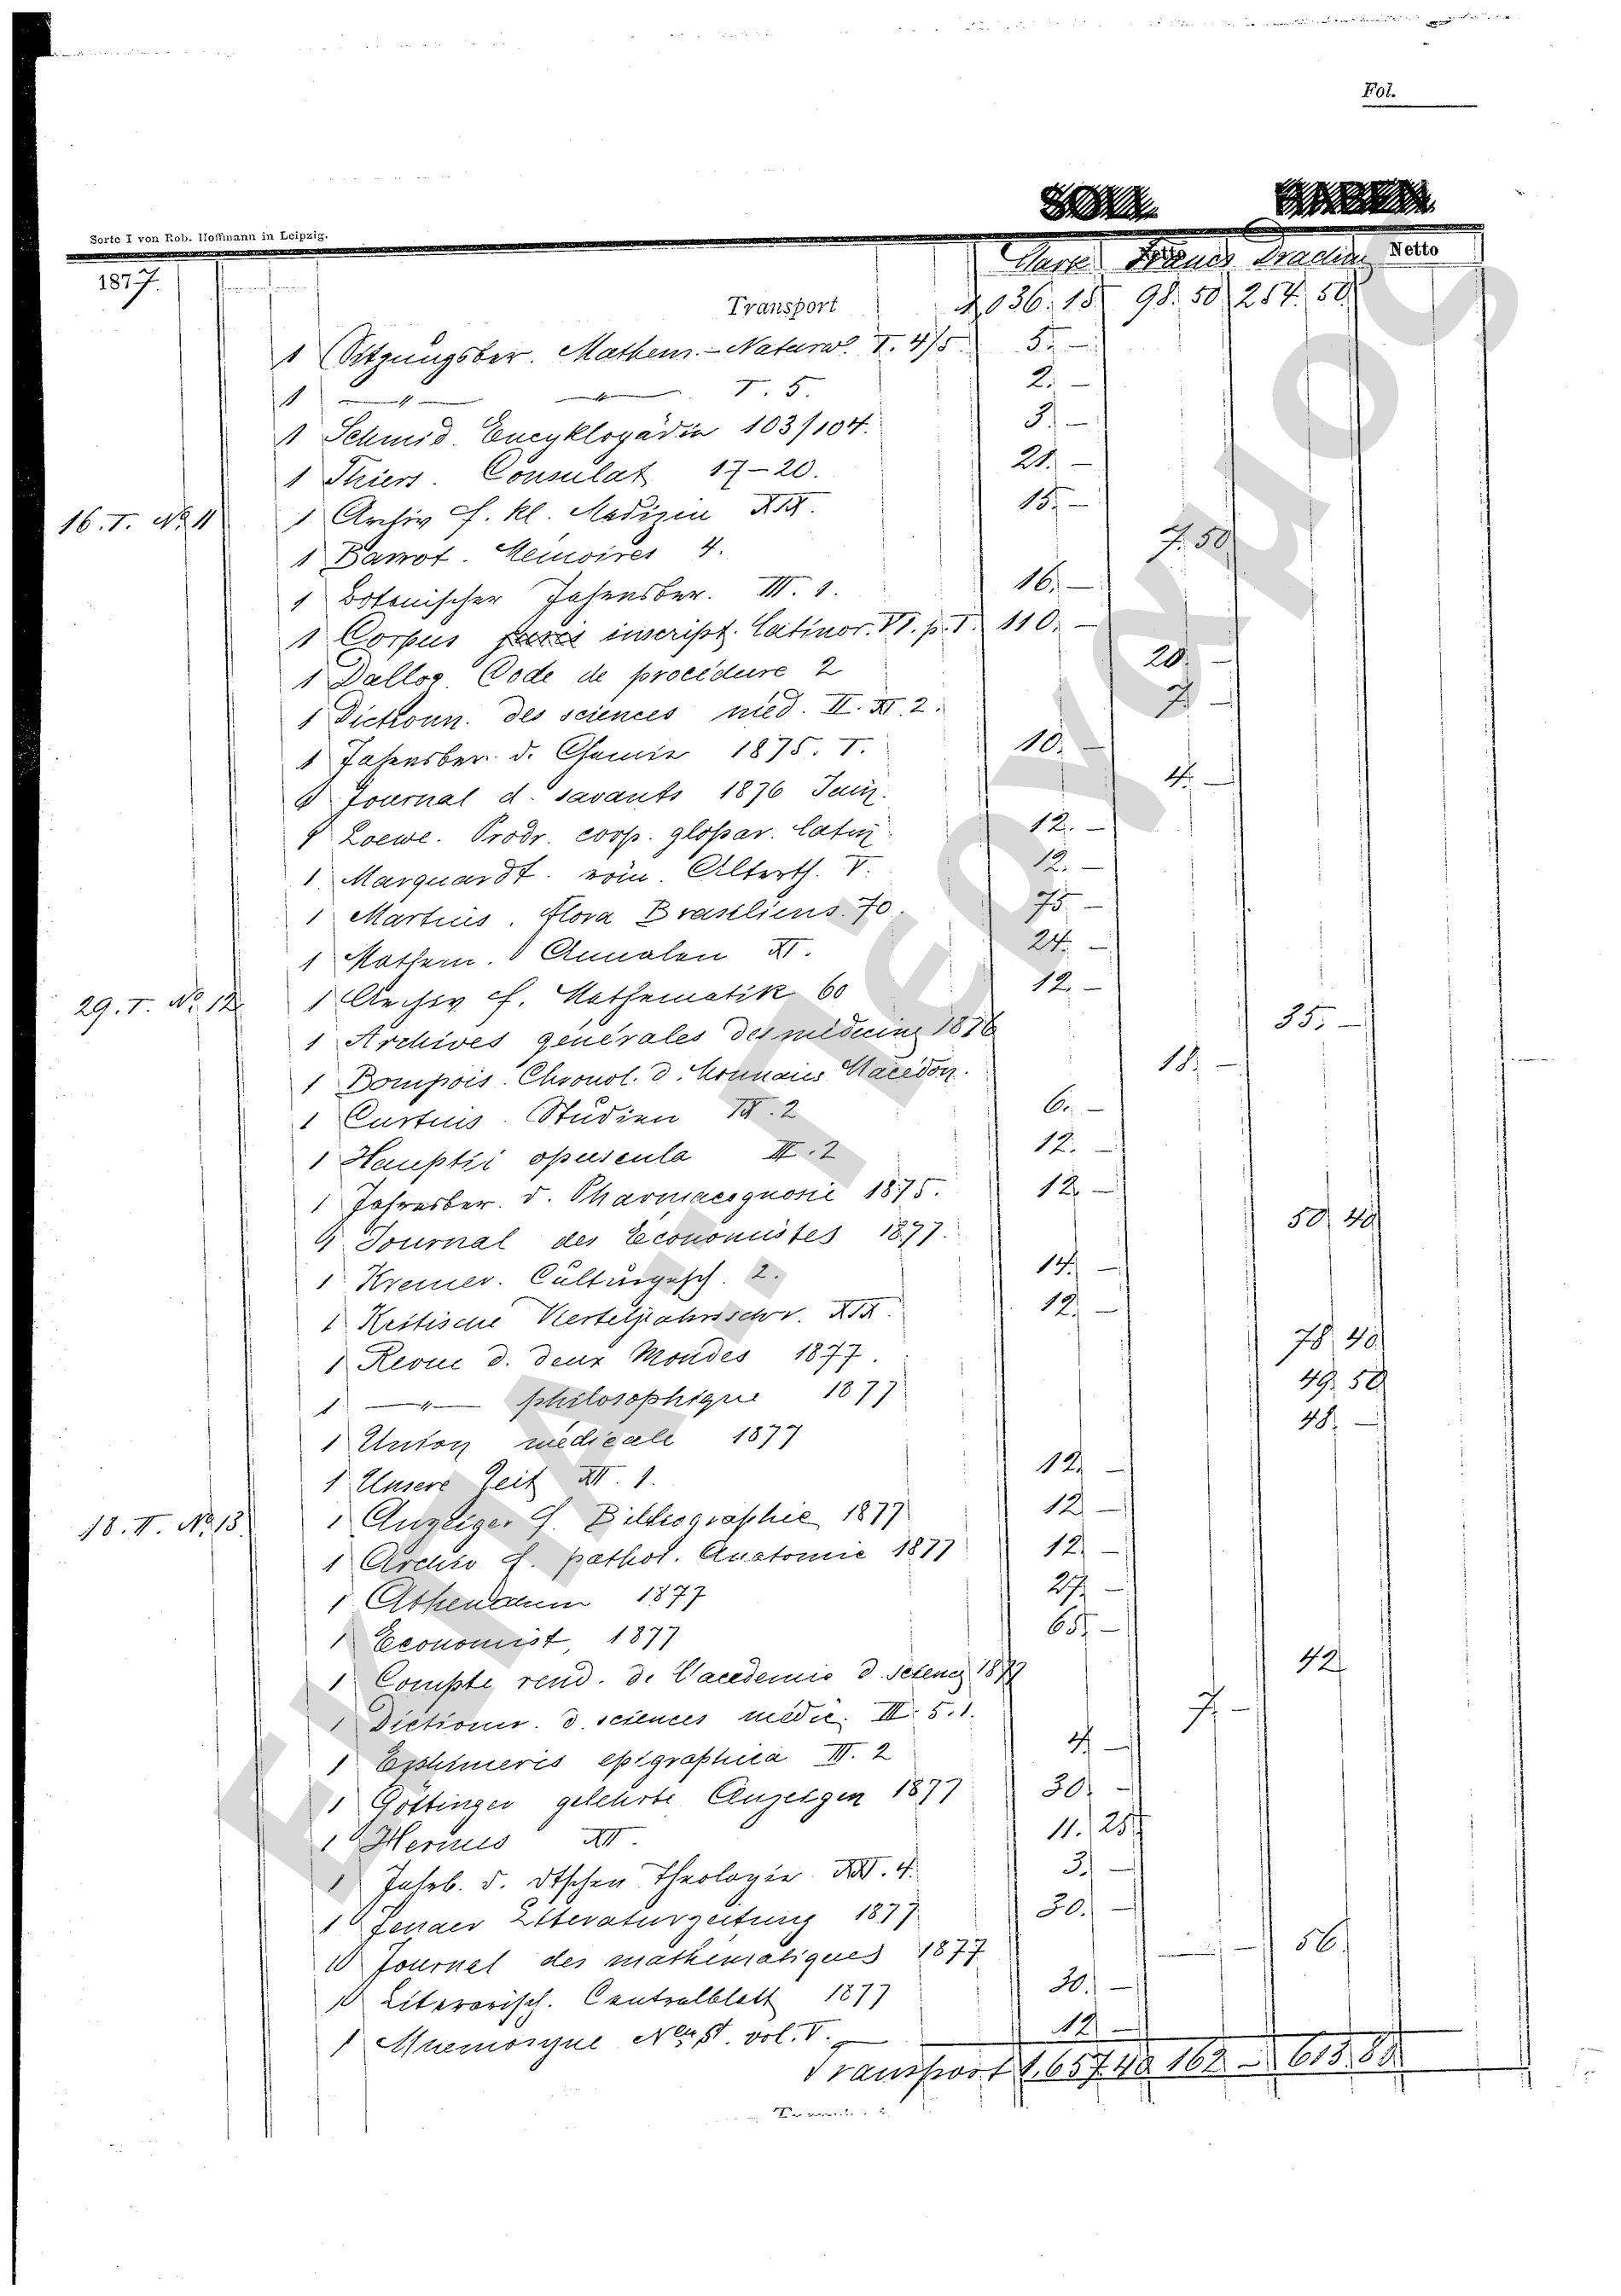 Fol.
SOLL HABEN
Sorte I von Rob. Hoffmann in Leipzig.
1877. Mark Francs Drachm Netto
Transport 1,036. 15 98. 50 257. 50
1 Sitzungsber. Mathem.-Naturw. I. 4/5 5. —
1 —〃— —〃— I. 5. 2. —
1 Schmid. Encyklopädie 103/104. 3. —
1 Thiers. Consulat 17–20. 21. —
16. I. No. 11 1 Archiv f. kl. Medizin XIX. 15. —
1 Barrot. Memoires 4. 7. 50
1 Botanischer Jahresber. III. 1. 16. —
1 Corpus inscript. latinor. VI. p. I. 110. —
1 Dalloz Code de procédure 2 20. —
1 Dictionn. des sciences med. II. XI. 2. 7. —
1 Jahresber. d. Chemie 1875. I. 10. —
1 Journal d. savants 1876 Juin. 4. —
1 Loewe. Prodr. corp. glossar. latin. 12. —
1 Marquardt. röm. Alterth. V. 12. —
1 Martius. flora Brasiliens. 70. 75 —
1 Mathem. Annalen XI. 24. —
29. I. No. 12 1 Archiv f. Mathematik 60 12. —
1 Archives générales de médecine 1876 35. —
1 Bompois. Chronol. d. Monnaies Macédon. 18. —
1 Curtius. Studien IX. 2 6. —
1 Hauptii opuscula III. 2 12. —
1 Jahresber. d. Pharmacognosie 1875. 12. —
1 Journal des Economistes 1877. 50. 40
1 Kremer. Culturgesch. 2. 14. —
1 Kritische Vierteljahrsschr. XIX. 12. —
1 Revue d. deux Mondes 1877. 78. 40
1 —〃— philosophique 1877 49. 50
1 Union médicale 1877 48. —
1 Unsere Zeit XII. 1. 12. —
18. II. No. 13. 1 Anzeiger f. Bibliographie 1877 12. —
1 Archiv f. pathol. Anatomie 1877 12. —
1 Athenaeum 1877 27. —
1 Economist, 1877 65. —
1 Compte rend. de l'academie d. scienc. 1877 42
1 Dictionn. d. sciences médic. III. 5. 1. 7. —
1 Ephemeris epigraphica III. 2 4. —
1 Göttinger gelehrte Anzeigen 1877 30. —
1 Hermes XII. 11. 25
1 Jahrb. d. dtschen Theologie XXI. 4. 3. —
1 Jenaer Literaturzeitung 1877 30. —
1 Journal des mathématiques 1877 56.
1 Literarisch. Centralblatt 1877 30. —
1 Mnemosyne vol. V. 12. —
Transport 1,657. 40 162 — 613. 80
ΕΚΠΑ - Πέργαμος